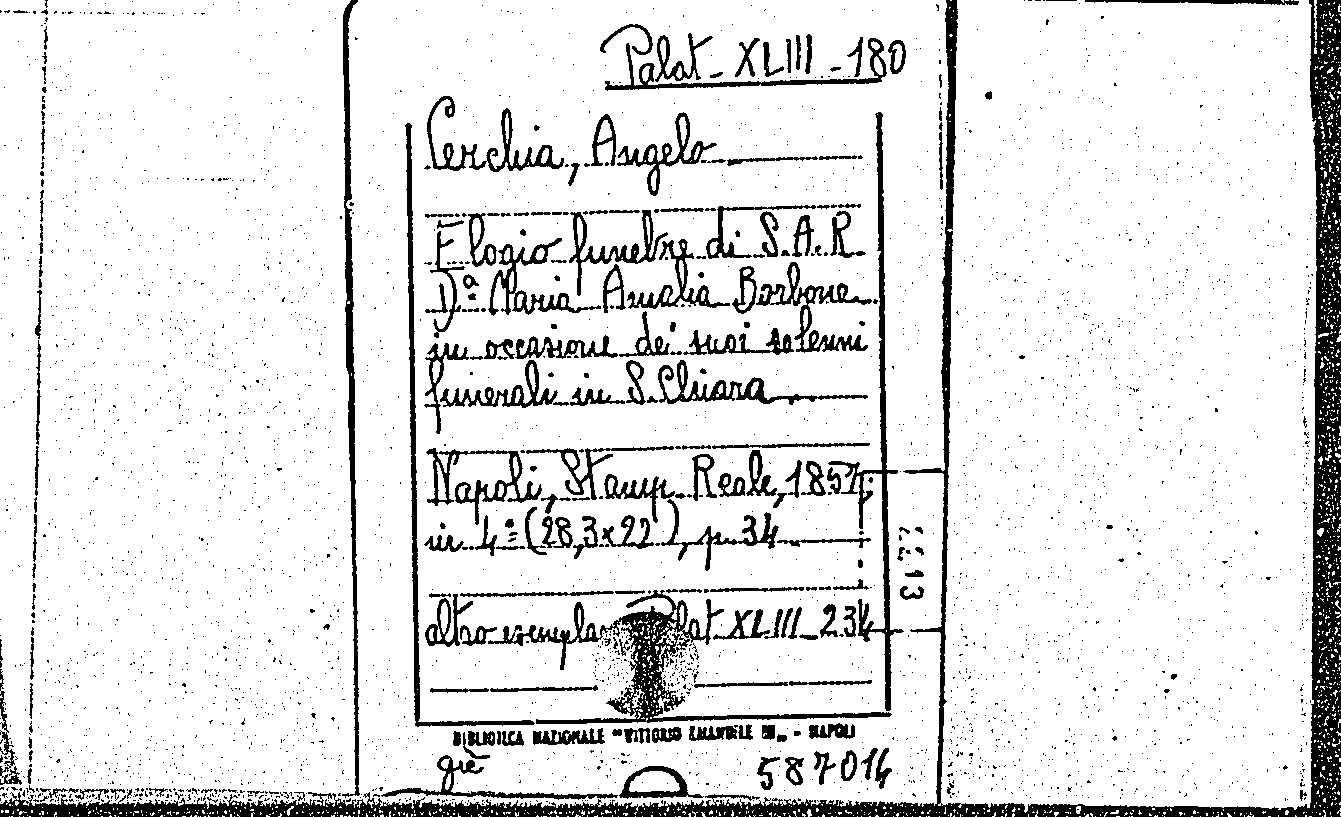 Palat - XLIII - 180
Cerchia, Angelo
Elogio funebre di S.A.R.
D.ª Maria Amalia Borbone
in occasione de' suoi solenni
funerali in S. Chiara...
Napoli, Stamp. Reale, 1857;
in 4º (28,3x22), p. 34
altro esemplare Palat XLIII - 234
BIBLIOTECA NAZIONALE "VITTORIO EMANUELE III" - NAPOLI
già 587014